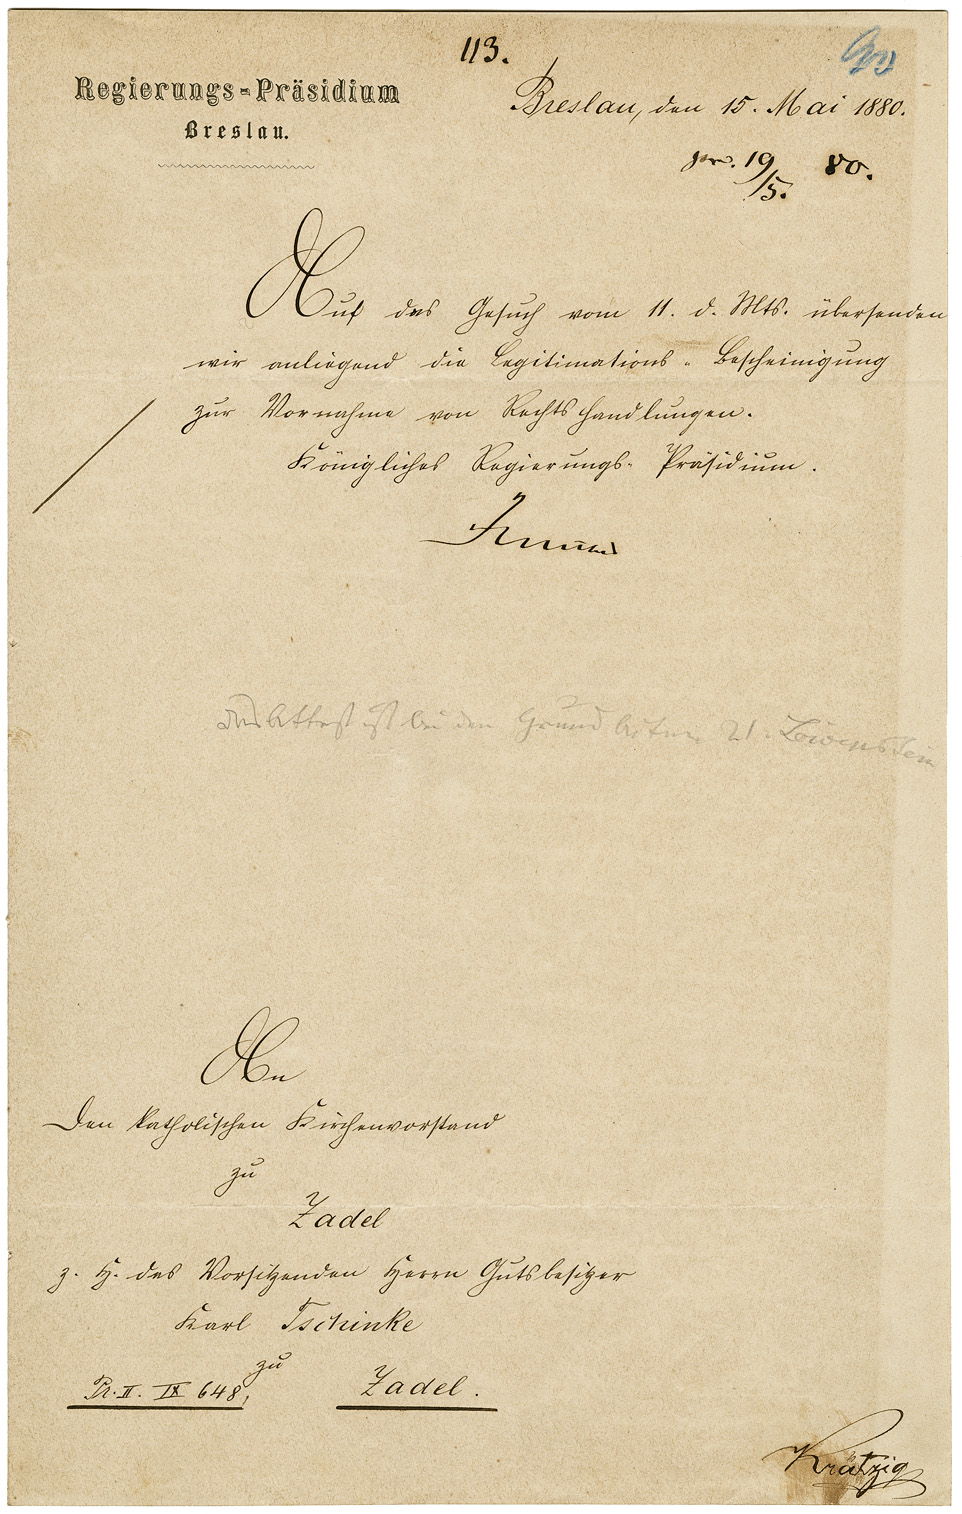 113.
Regierungs-Präsidium
Breslau.
Breslau, den 15. Mai 1880.
pr. 19/5. 80.
Auf das Gesuch vom 11. d. Mts. übersenden
wir anliegend die Legitimations-Bescheinigung
zur Vornahme von Rechtshandlungen.
Königliches Regierungs-Präsidium.
Das Attest ist bei den Grund Akten 21. Löwenstein
An
Den katholischen Kirchenvorstand
zu
Zadel
z. H. des Vorsitzenden Herrn Gutsbesitzer
Karl Tschinke
zu
Pr. II. IX 648,
Zadel.
Krätzig